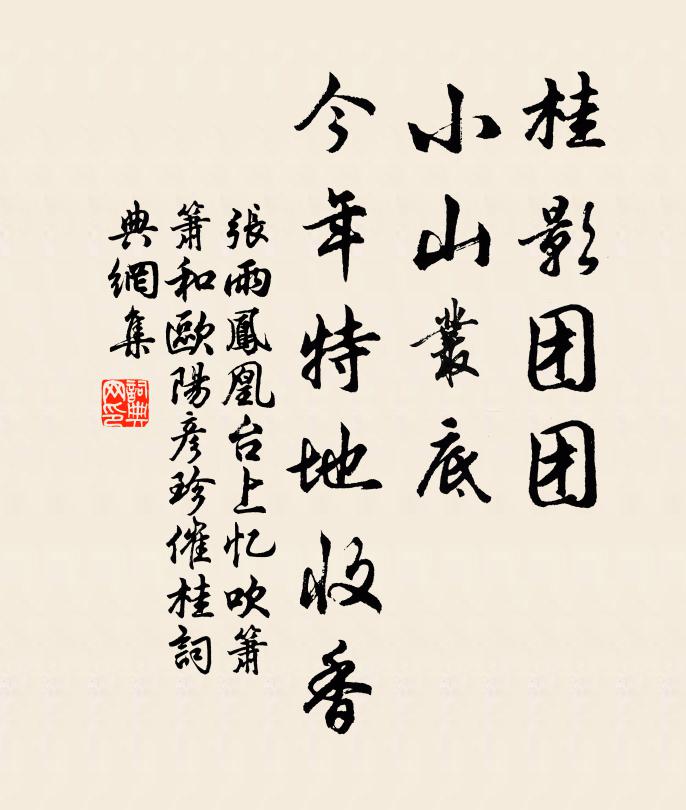 桂影团团
小山叢底
今年特地收香
張雨鳳凰台上忆吹簫
簫和歐陽彦珍催桂詞
典網集
詞典
网印